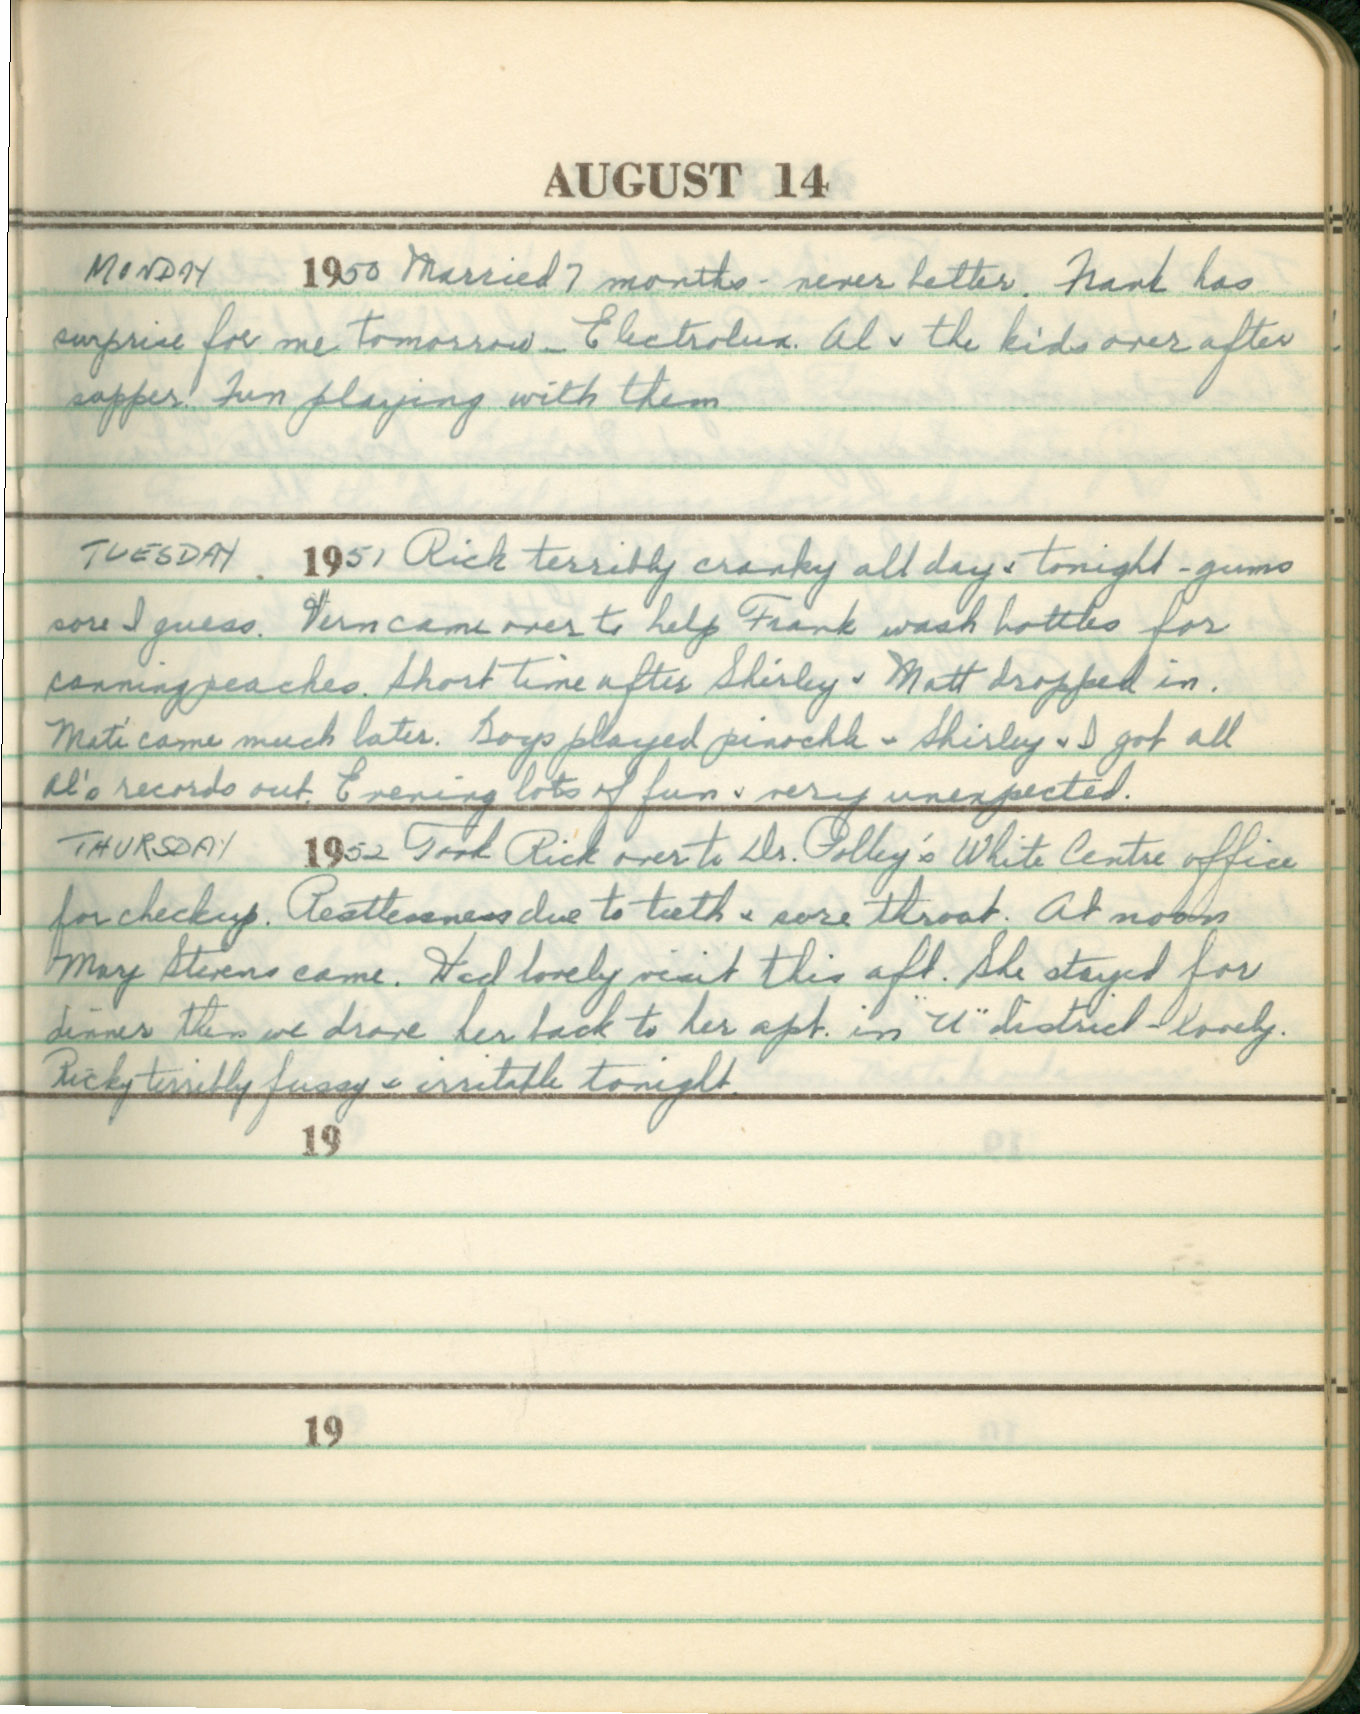 AUGUST 14
MONDAY 1950 Married 7 months - never better. Frank has
surprise for me tomorrow - Electrolux. Al & the kids over after
supper. Fun playing with them
TUESDAY. 1951 Rick terribly cranky all day & tonight - gums
sore I guess. Vern came over to help Frank wash bottles for
canning peaches. Short time after Shirley & Matt dropped in.
came much later. Boys played pinochle & Shirley & I got all
Al's records out. Evening lots of fun & very unexpected.
THURSDAY 1952 Took Rick over to Dr. Polley's White Centre office
for checkup. Restlessness due to teeth & sore throat. At noon
Mary Stevens came. Had lovely visit this aft. She stayed for
dinner then we drove her back to her apt. in "U" district - lovely.
Ricky terribly fussy & irritable tonight.
19
19